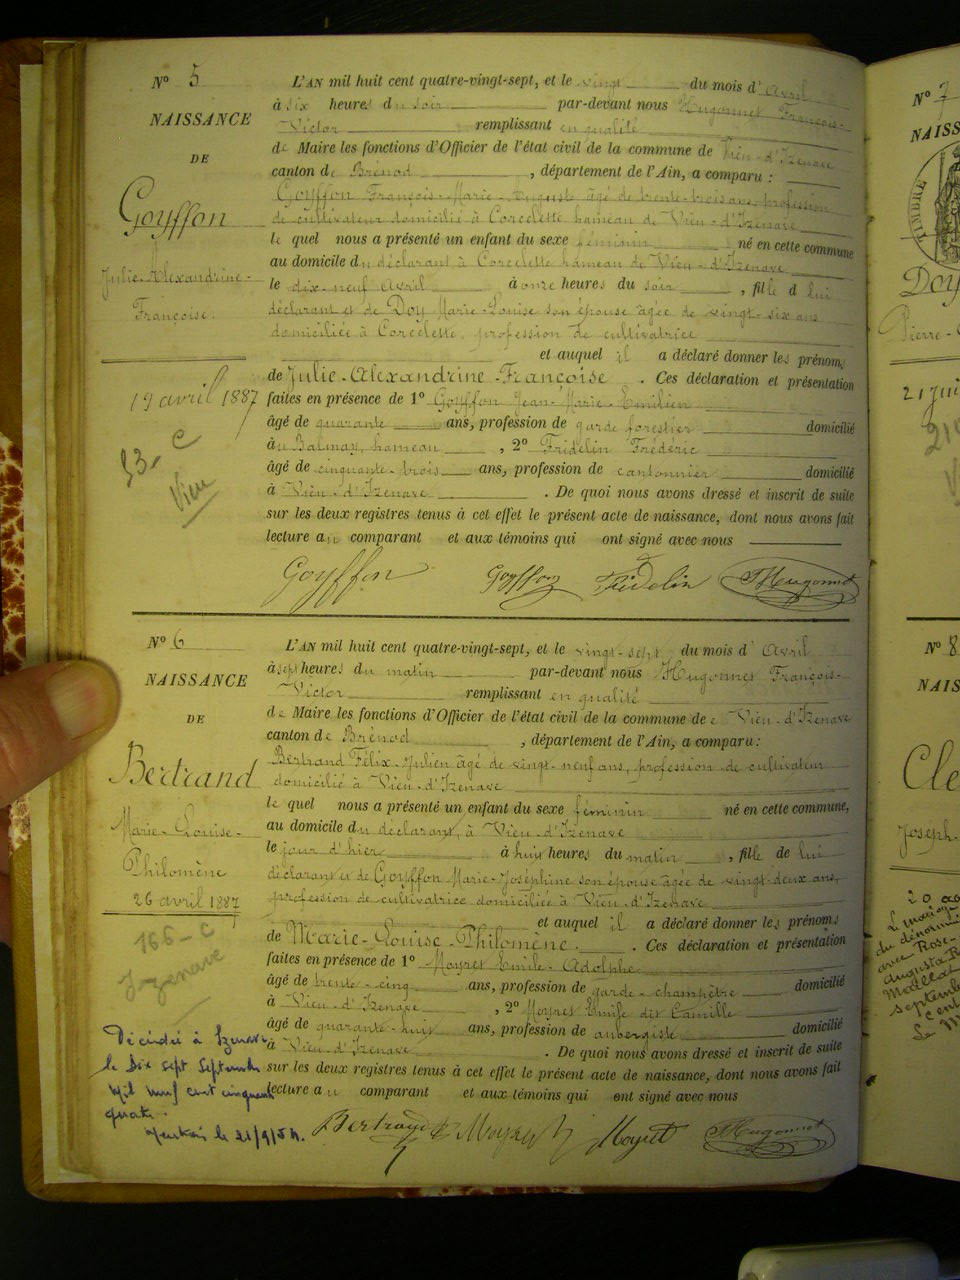 N° 5
NAISSANCE
DE
Goyffon
Julie-Alexandrine-
Françoise.
19 avril 1887
Vieu
L'AN mil huit cent quatre-vingt-sept, et le vingt du mois d'Avril
à six heures du soir par-devant nous Hugonnet François-
Victor remplissant en qualité
de Maire les fonctions d'Officier de l'état civil de la commune de Vieu-d'Izenave
canton de Brénod, département de l'Ain, a comparu :
Goyffon François-Marie-Auguste âgé de trente-trois ans, profession
de cultivateur domicilié à Corcelette hameau de Vieu-d'Izenave
le quel nous a présenté un enfant du sexe féminin né en cette commune
au domicile du déclarant à Corcelette hameau de Vieu-d'Izenave
le dix-neuf Avril à onze heures du soir, fille d lui
déclarant et de Doy Marie-Louise son épouse âgée de vingt-six ans
domiciliée à Corcelette, profession de cultivatrice
et auquel il a déclaré donner les prénoms
de Julie-Alexandrine-Françoise. Ces déclaration et présentation
faites en présence de 1° Goyffon Jean-Marie-Emilien
âgé de quarante ans, profession de garde forestier domicilié
à au Balmay, hameau, 2° Fridelin Frédéric
âgé de cinquante-trois ans, profession de cantonnier domicilié
à Vieu-d'Izenave. De quoi nous avons dressé et inscrit de suite
sur les deux registres tenus à cet effet le présent acte de naissance, dont nous avons fait
lecture au comparant et aux témoins qui ont signé avec nous
Goyffon Goyffon Fridelin Hugonnet
N° 6
NAISSANCE
DE
Bertrand
Marie-Louise-
Philomène
26 avril 1887
166-C
Izenave
Décédée à Izenave
le dix sept Septembre
mil neuf cent cinquante
quatre.
le 21/9/54.
L'AN mil huit cent quatre-vingt-sept, et le vingt-sept du mois d'Avril
à sept heures du matin par-devant nous Hugonnet François-
Victor remplissant en qualité
de Maire les fonctions d'Officier de l'état civil de la commune de Vieu-d'Izenave
canton de Brénod, département de l'Ain, a comparu :
Bertrand Félix-Julien âgé de vingt-neuf ans, profession de cultivateur
domicilié à Vieu-d'Izenave
le quel nous a présenté un enfant du sexe féminin né en cette commune,
au domicile du déclarant, à Vieu-d'Izenave
le jour d'hier à huit heures du matin, fille de lui
déclarant et de Goyffon Marie-Joséphine son épouse âgée de vingt-deux ans,
profession de cultivatrice domiciliée à Vieu-d'Izenave
et auquel il a déclaré donner les prénoms
de Marie-Louise-Philomène. Ces déclaration et présentation
faites en présence de 1° Moyret Emile-Adolphe
âgé de trente-cinq ans, profession de garde-champêtre domicilié
à Vieu-d'Izenave, 2° Moyret Emile dit Camille
âgé de quarante-huit ans, profession de aubergiste domicilié
à Vieu-d'Izenave. De quoi nous avons dressé et inscrit de suite
sur les deux registres tenus à cet effet le présent acte de naissance, dont nous avons fait
lecture au comparant et aux témoins qui ont signé avec nous
Bertrand Moyret Moyret Hugonnet
N° 7
NAISS
TIMBRE
Doy
Pierre-
21 Jui
N° 8
NAIS
Cle
Joseph-
avec Rose-
septembre
cent